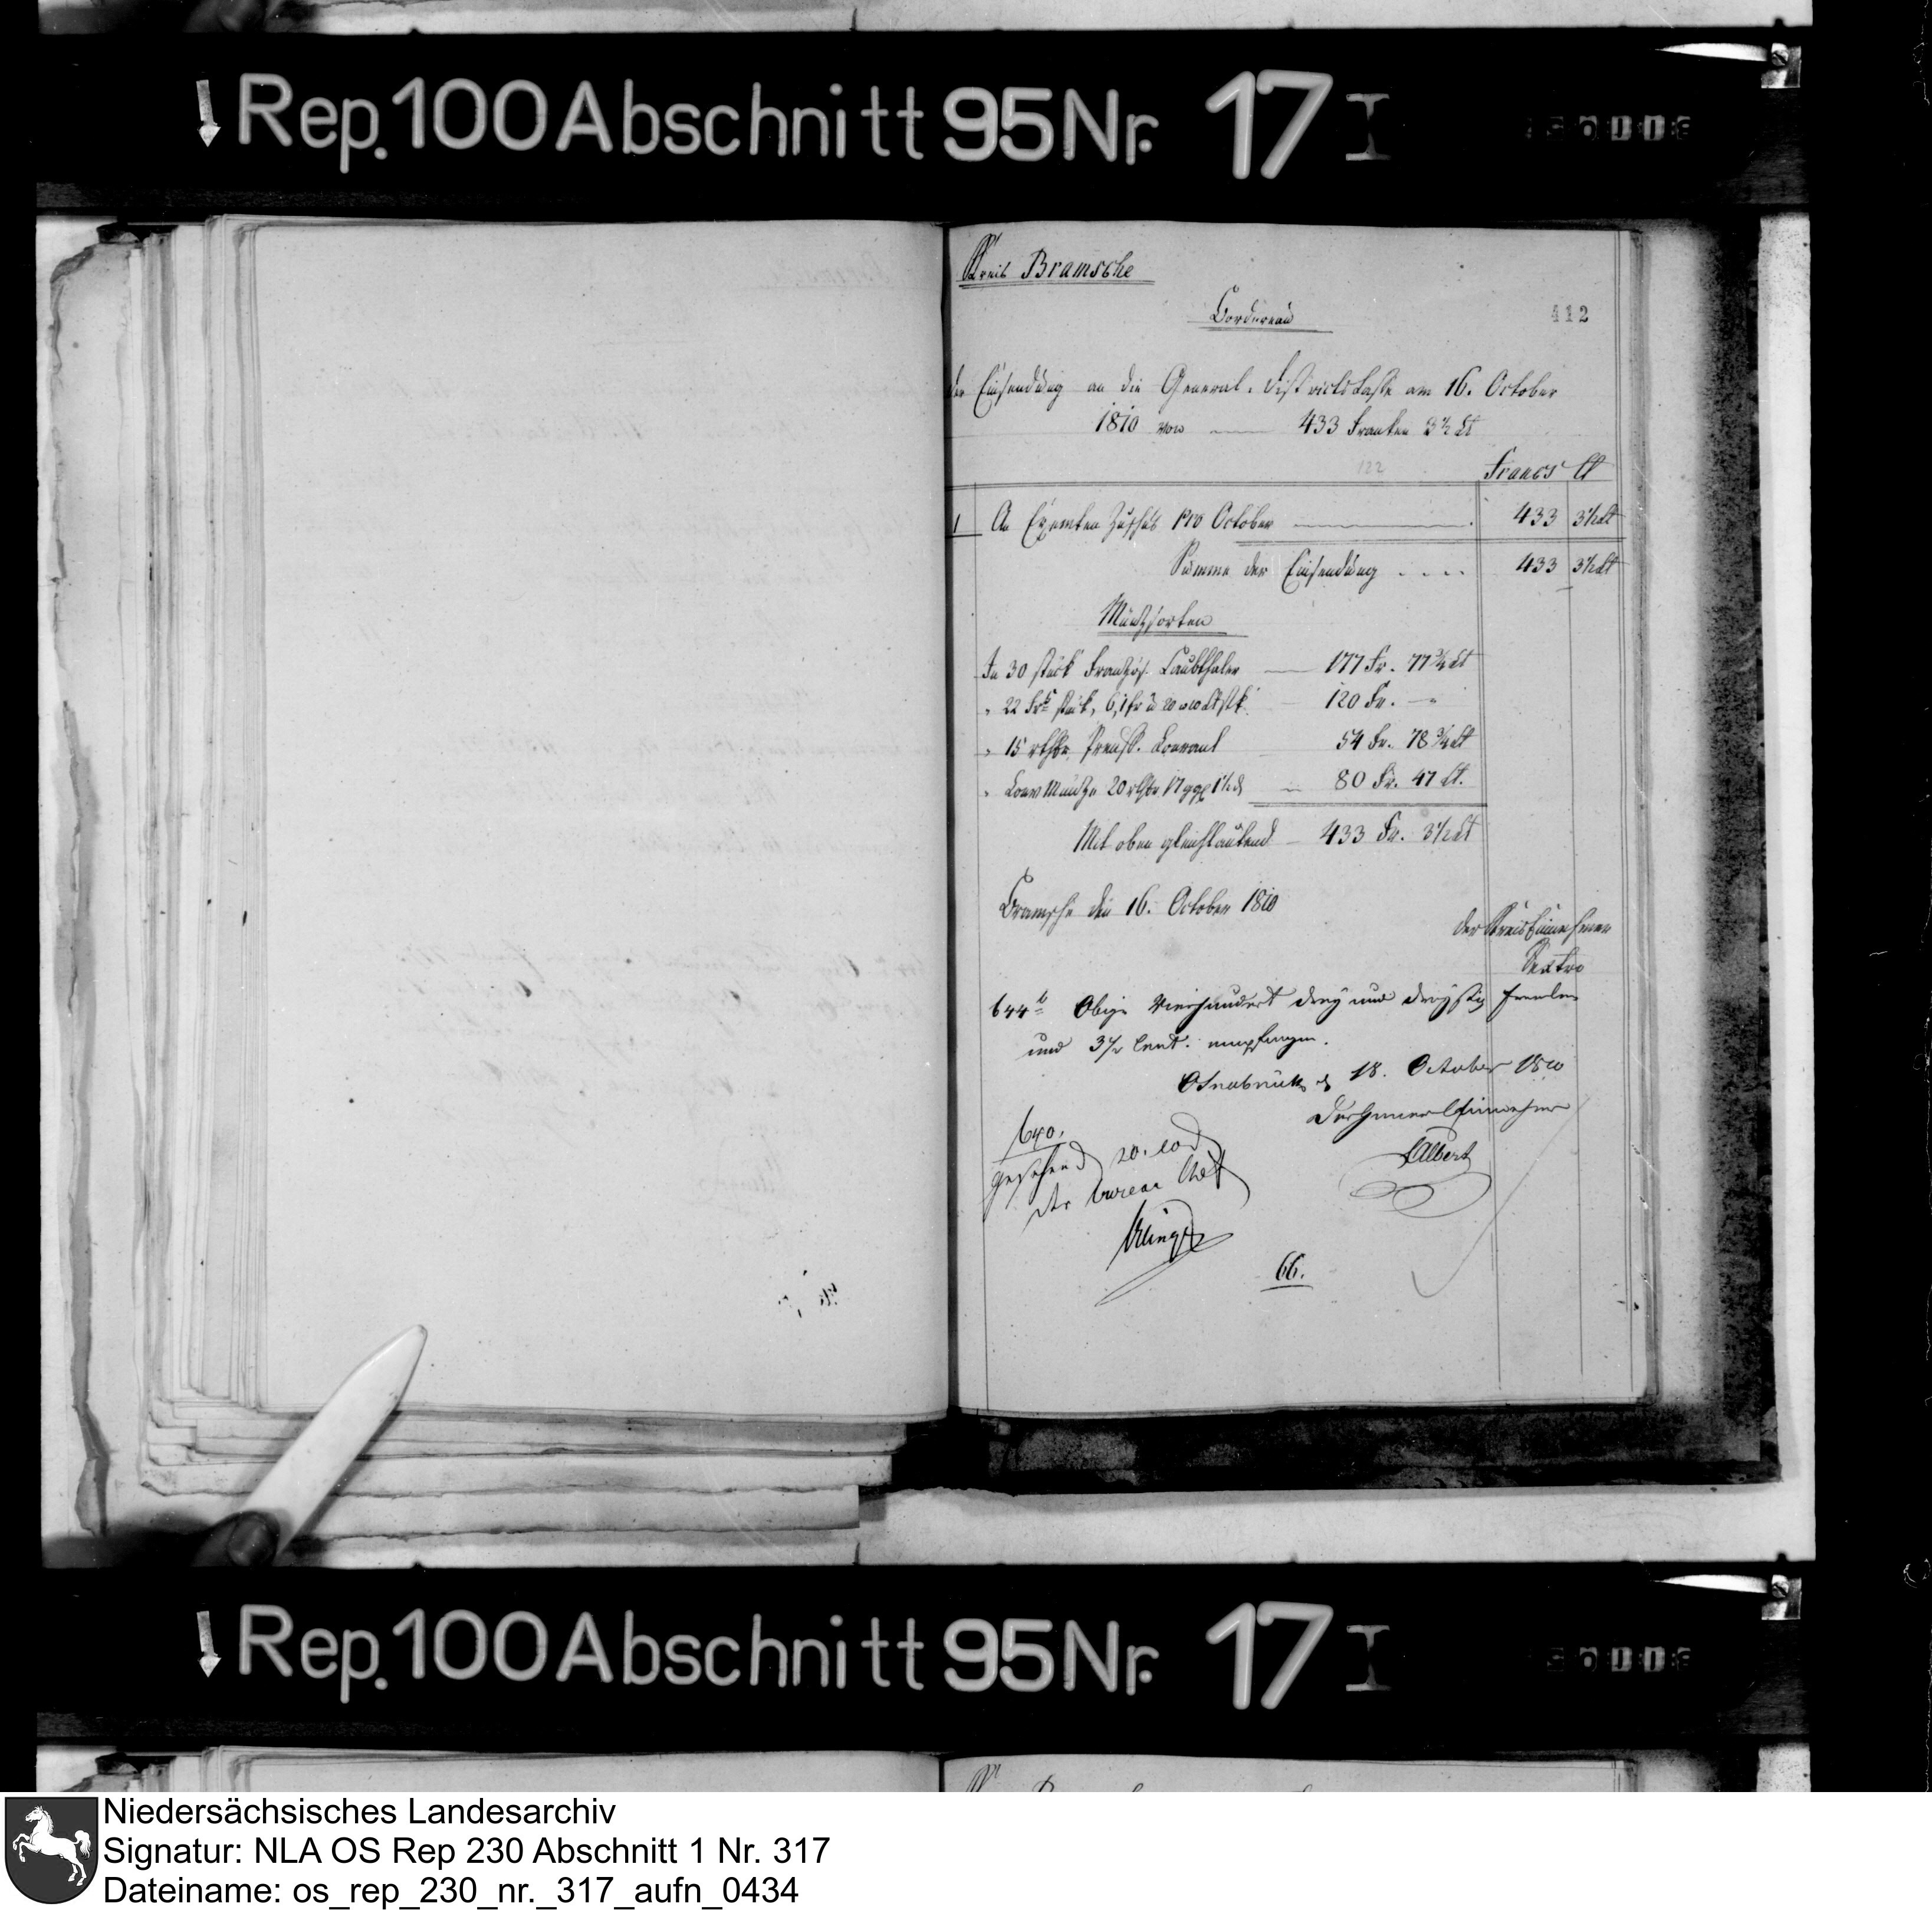 Rep. 100 Abschnitt 95 Nr. 17 I
Kreis Bramsche
Bordereau
412
der Einsendung an die General-Districts Casse am 16. October
1810 von 433 Franken 3½ Ct
122
Francs Ct
1 An Exemten Zuschus pro October 433 3½ Ct
Summa der Einsendung .... 433 3½ Ct
Müntzsorten
In 30 stück Französ. Laubthaler 177 Fr. 77¾ Ct
" 22 Frc stück, 120 Fr. "
" 15 rthlr Preuss. Courant 54 Fr. 78¾ Ct
" Conv Müntze 20 rthlr 17 ggl 1½ d 80 Fr. 47 Ct.
Mit oben gleichlautend 433 Fr. 3½ Ct
Bramsche den 16. October 1810
der Kreis Einnehmer
Sextro
644 Obige Vierhundert drey und dreyssig franken
und 3½ Cent. empfangen.
Osnabrück d 18. October 1810
Der General Einnehmer
Albert
640.
gesehen d 20. 10
der Bureau Chef
66.
Rep. 100 Abschnitt 95 Nr. 17 I
Niedersächsisches Landesarchiv
Signatur: NLA OS Rep 230 Abschnitt 1 Nr. 317
Dateiname: os_rep_230_nr._317_aufn_0434